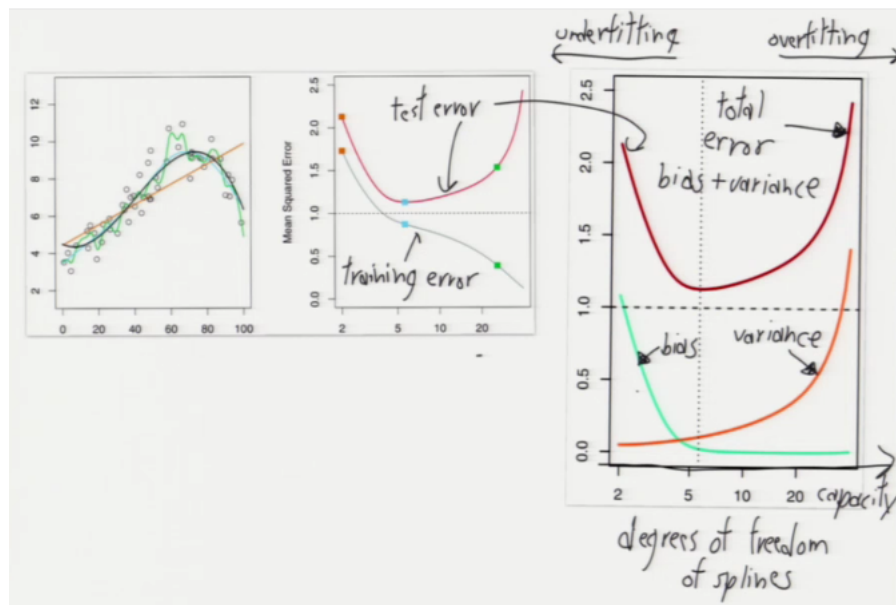 underfitting
overfitting
12
10
8
6
4
2
0 20 40 60 80 100
Mean Squared Error
2.5
2.0
1.5
1.0
0.5
0.0
2 5 10 20
test error
training error
2.5
2.0
1.0
0.5
0.0
total
error
bias+variance
bias
variance
2 5 10 20
capacity
degrees of freedom
of splines